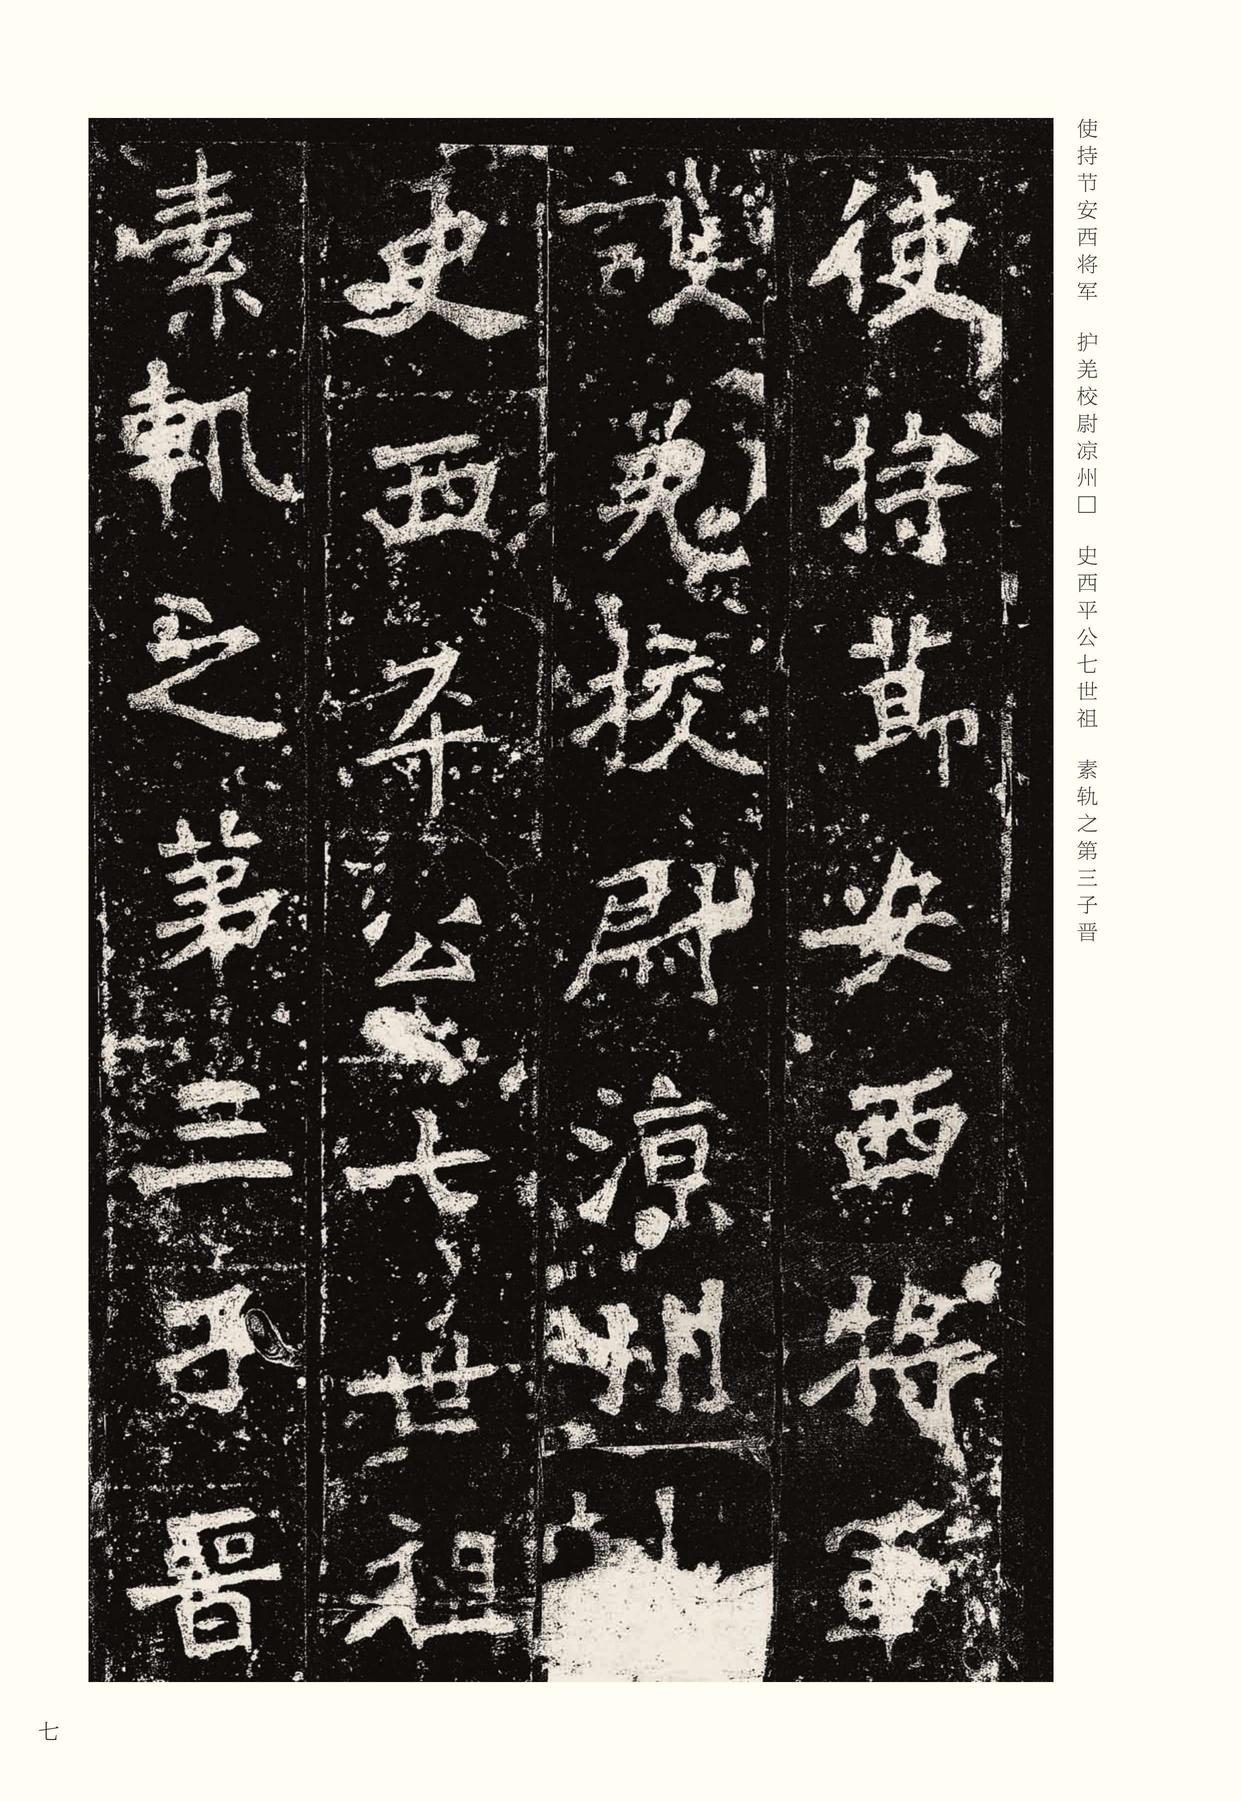 使持节安西将军　护羌校尉凉州□　史西平公七世祖　素轨之第三子晋
使持節安西將軍
護羌校尉涼州
史西平公七世祖
素軌之第三子晉
七